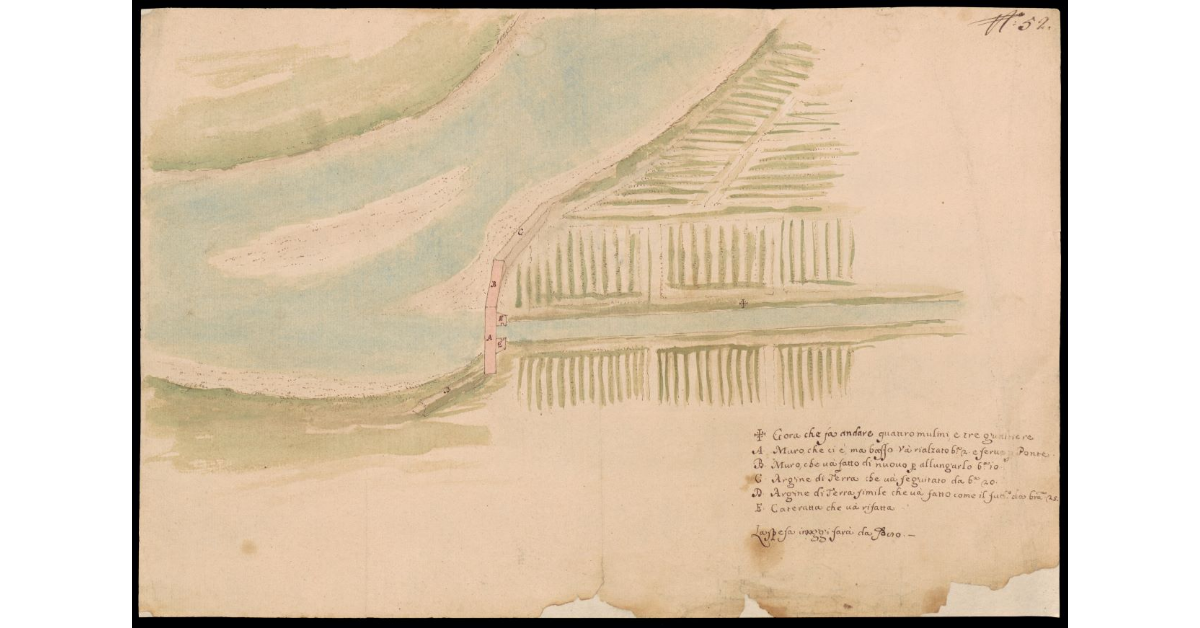 N.º 52.
C
B
A
E
E
D
✢ Gora che fa andare quattro mulini e tre gualchiere
A. Muro che ci è ma basso va rialzato b.ª 2. e serve p Ponte.
B. Muro, che va fatto di nuovo p allungarlo b.ª 10
C Argine di Terra che va seguitato da b.ª 20.
D Argine di Terra simile che va fatto come il da b.ª 25.
E. Cateratta che va rifatta
La spesa sarà da